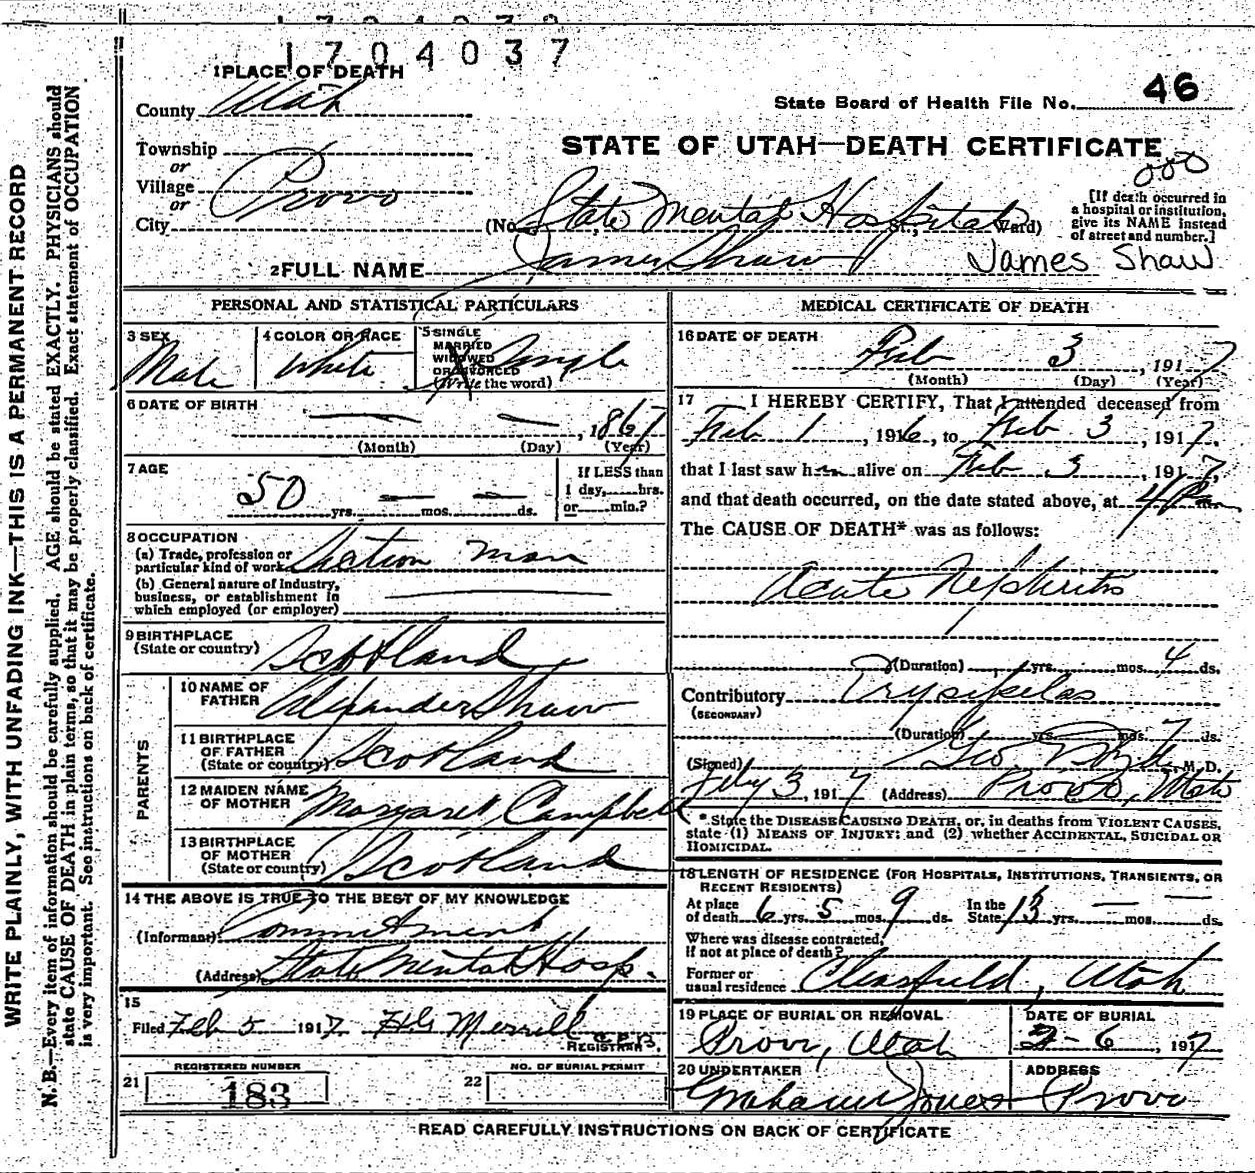 1704037
1 PLACE OF DEATH
County Utah
State Board of Health File No. 46
Township
or
Village
or
City Provo
STATE OF UTAH—DEATH CERTIFICATE
(No. State Mental Hospital St., Ward)
[If death occurred in
a hospital or institution,
give its NAME instead
of street and number.]
2 FULL NAME James Shaw James Shaw
PERSONAL AND STATISTICAL PARTICULARS
3 SEX
Male
4 COLOR OR RACE
White
5 SINGLE
MARRIED
WIDOWED
OR DIVORCED
(Write the word)
Single
6 DATE OF BIRTH
— — , 1867
(Month) (Day) (Year)
7 AGE
50 yrs. — mos. — ds.
If LESS than
1 day, hrs.
or min.?
8 OCCUPATION
(a) Trade, profession or
particular kind of work Section man
(b) General nature of Industry,
business, or establishment in
which employed (or employer) —
9 BIRTHPLACE
(State or country) Scotland
PARENTS
10 NAME OF
FATHER Alexander Shaw
11 BIRTHPLACE
OF FATHER
(State or country) Scotland
12 MAIDEN NAME
OF MOTHER Margaret Campbell
13 BIRTHPLACE
OF MOTHER
(State or country) Scotland
14 THE ABOVE IS TRUE TO THE BEST OF MY KNOWLEDGE
(Informant) Commitment
(Address) State Mental Hosp.
15
Filed Feb 5 1917 Merrill
REGISTRAR
REGISTERED NUMBER
21 183
NO. OF BURIAL PERMIT
22
MEDICAL CERTIFICATE OF DEATH
16 DATE OF DEATH
Feb 3 , 1917
(Month) (Day) (Year)
17 I HEREBY CERTIFY, That I attended deceased from
Feb 1 , 1916, to Feb 3 , 1917,
that I last saw him alive on Feb 3 , 1917,
and that death occurred, on the date stated above, at 4 m.
The CAUSE OF DEATH* was as follows:
Acute Nephritis
(Duration) yrs. mos. 4 ds.
Contributory Erysipelas
(SECONDARY)
(Duration) yrs. mos. 7 ds.
(Signed) Geo M. D.
Feby 3, 1917 (Address) Provo, Utah
*State the DISEASE CAUSING DEATH, or, in deaths from VIOLENT CAUSES,
state (1) MEANS OF INJURY; and (2) whether ACCIDENTAL, SUICIDAL OR
HOMICIDAL.
18 LENGTH OF RESIDENCE (FOR HOSPITALS, INSTITUTIONS, TRANSIENTS, OR
RECENT RESIDENTS)
At place
of death 6 yrs. 5 mos. 9 ds. In the
State 13 yrs. — mos. — ds.
Where was disease contracted,
if not at place of death?
Former or
usual residence Clearfield, Utah
19 PLACE OF BURIAL OR REMOVAL
Provo, Utah
DATE OF BURIAL
2-6, 1917
20 UNDERTAKER
Graham Jones
ADDRESS
Provo
READ CAREFULLY INSTRUCTIONS ON BACK OF CERTIFICATE
WRITE PLAINLY, WITH UNFADING INK—THIS IS A PERMANENT RECORD
N. B.—Every item of information should be carefully supplied. AGE should be stated EXACTLY. PHYSICIANS should
state CAUSE OF DEATH in plain terms, so that it may be properly classified. Exact statement of OCCUPATION
is very important. See instructions on back of certificate.